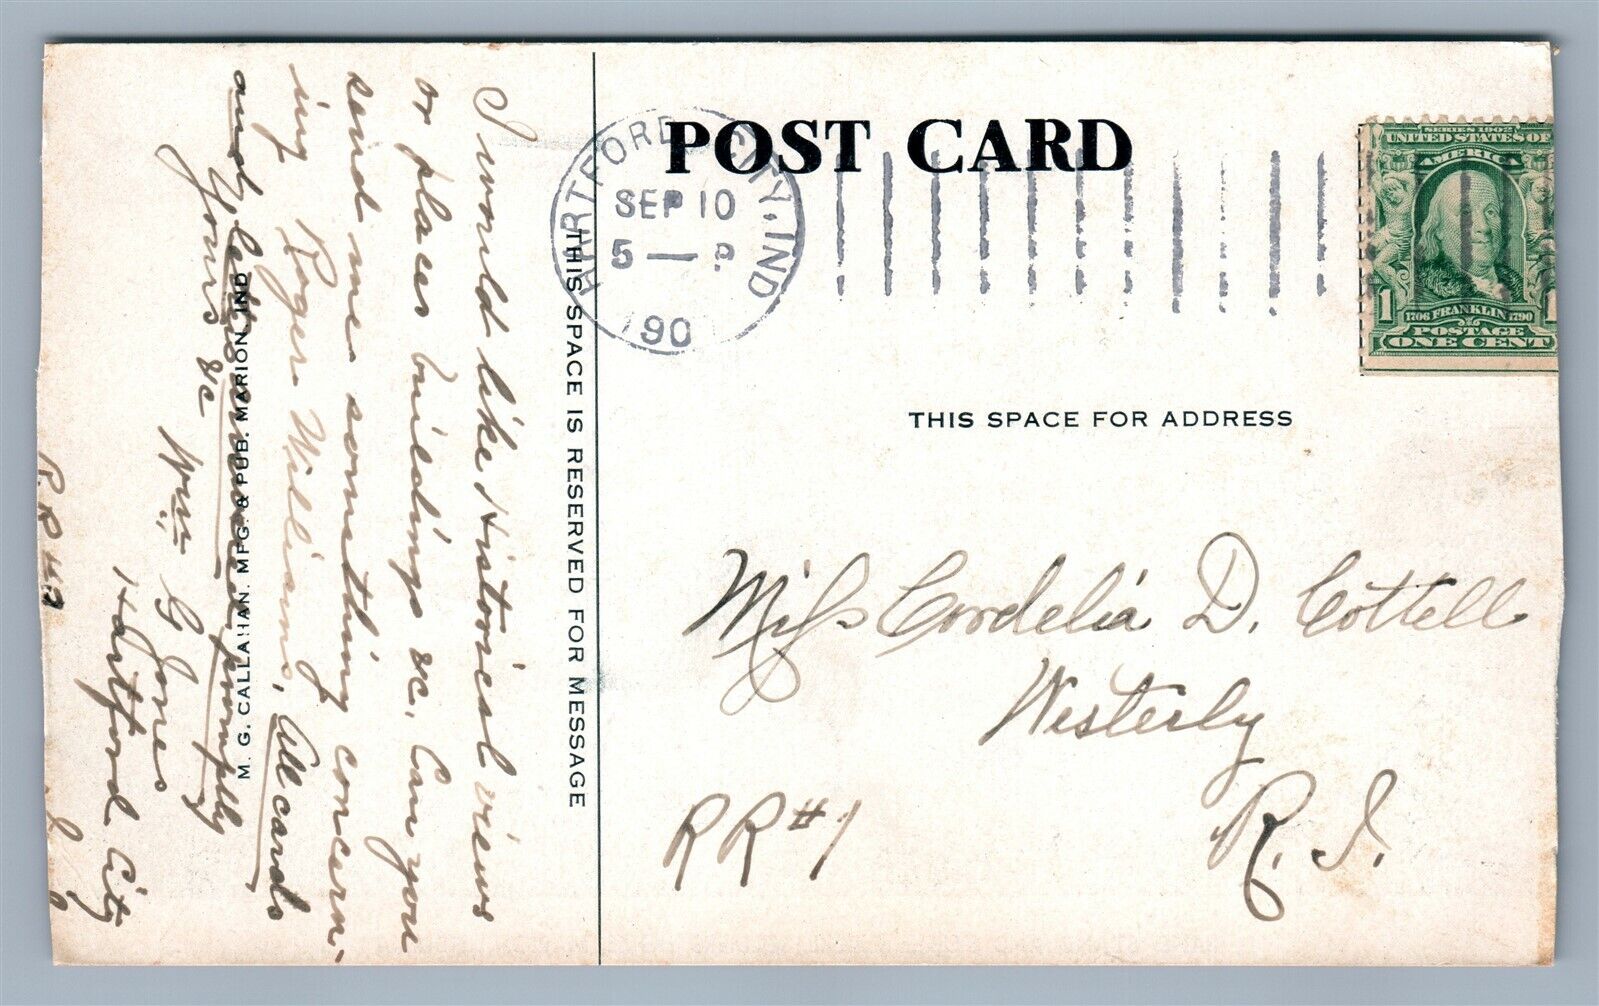 POST CARD
HARTFORD CITY. IND
SEP 10
5 — P.
190
SERIES 1902
UNITED STATES OF
AMERICA
1706 FRANKLIN 1790
POSTAGE
1 1
ONE CENT
THIS SPACE FOR ADDRESS
Miss Cordelia D. Cottell
Westerly
R. I.
RR#1
THIS SPACE IS RESERVED FOR MESSAGE
I would like Historical views
or places buildings &c. Can you
send me something concern-
ing Roger Williams, All cards
and promptly
Yours &c
Wm G Jones
Hartford City
R. R #2
M. G. CALLAHAN. MFG. & PUB. MARION, IND